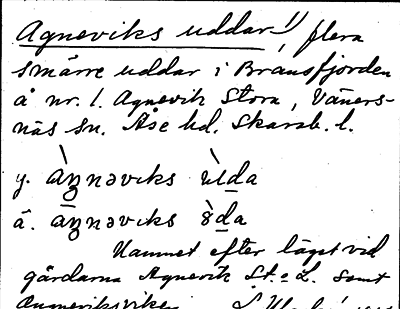 Agneviks uddar!!, flera
smärre uddar i Bransfjorden
å nr. 1. Agnevik Stora, Väners-
näs sn. Åse hd. Skarab. l.
y. àŋnəviks ùda
ä. àŋnəviks òda
Namnet efter läget vid
gårdarna Agnevik St. o L. samt